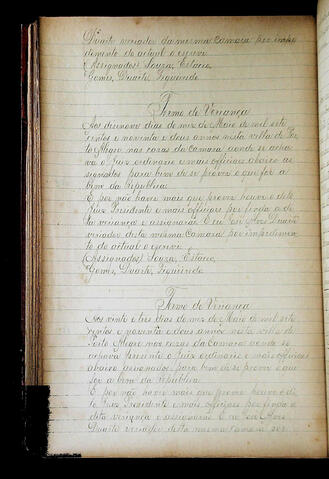 Duarte veriador da mesma Camara por impe
dimento do actual o escrevi
(Assignados) Souza, Estacio,
Gomes, Duarte, Figueiredo
Termo de Veriança
Aos desenove dias do mez de Maio de mil sete
centos e noventa e dous annos nesta villa de Por
to Alegre nas cazas da Camara aonde se acha
va o Juiz ordinario e mais officiaes abaixo as
signados para bem de se prover o que for a
bem da republica
E por não haver mais que prover houve o dito
Juiz Presidente e mais officiaes por finda a di
ta veriança e assignarão E eu Duarte
veriador desta mesma Camara por impedimen
to do actual o escrevi
(Assignados) Souza, Estacio,
Gomes, Duarte, Figueiredo
Termo de Veriança
Aos vinte e tres dias do mez de Maio de mil sete
centos e noventa e dous annos nesta villa de
Porto Alegre nas cazas da Camara aonde se
achava presente o Juiz ordinario e mais officiaes
abaixo assignados para bem de se prover o que
for a bem da republica
E por não haver mais que prover houve o di
to Juiz Presidente e mais officiaes por finda a
dita veriança e assignarão E eu
Duarte veriador desta mesma Camara por